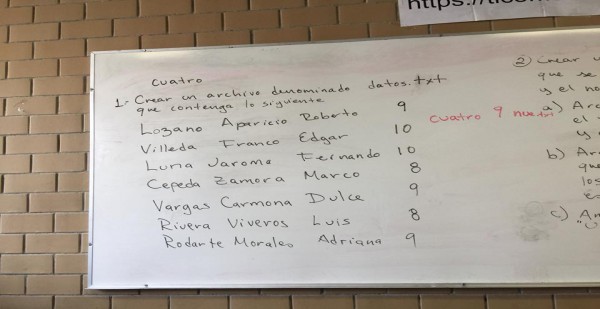 https://
cuatro
1- Crear un archivo denominado datos.txt
que contenga lo siguiente
Lozano Aparicio Roberto 9
Villeda Franco Edgar 10
Luna Jaroma Fernando 10
Cepeda Zamora Marco 8
Vargas Carmona Dulce 9
Rivera Viveros Luis 8
Rodarte Morales Adriana 9
cuatro 9
2) Crear
que se
y el
a)
el
y
b)
que
los
c)